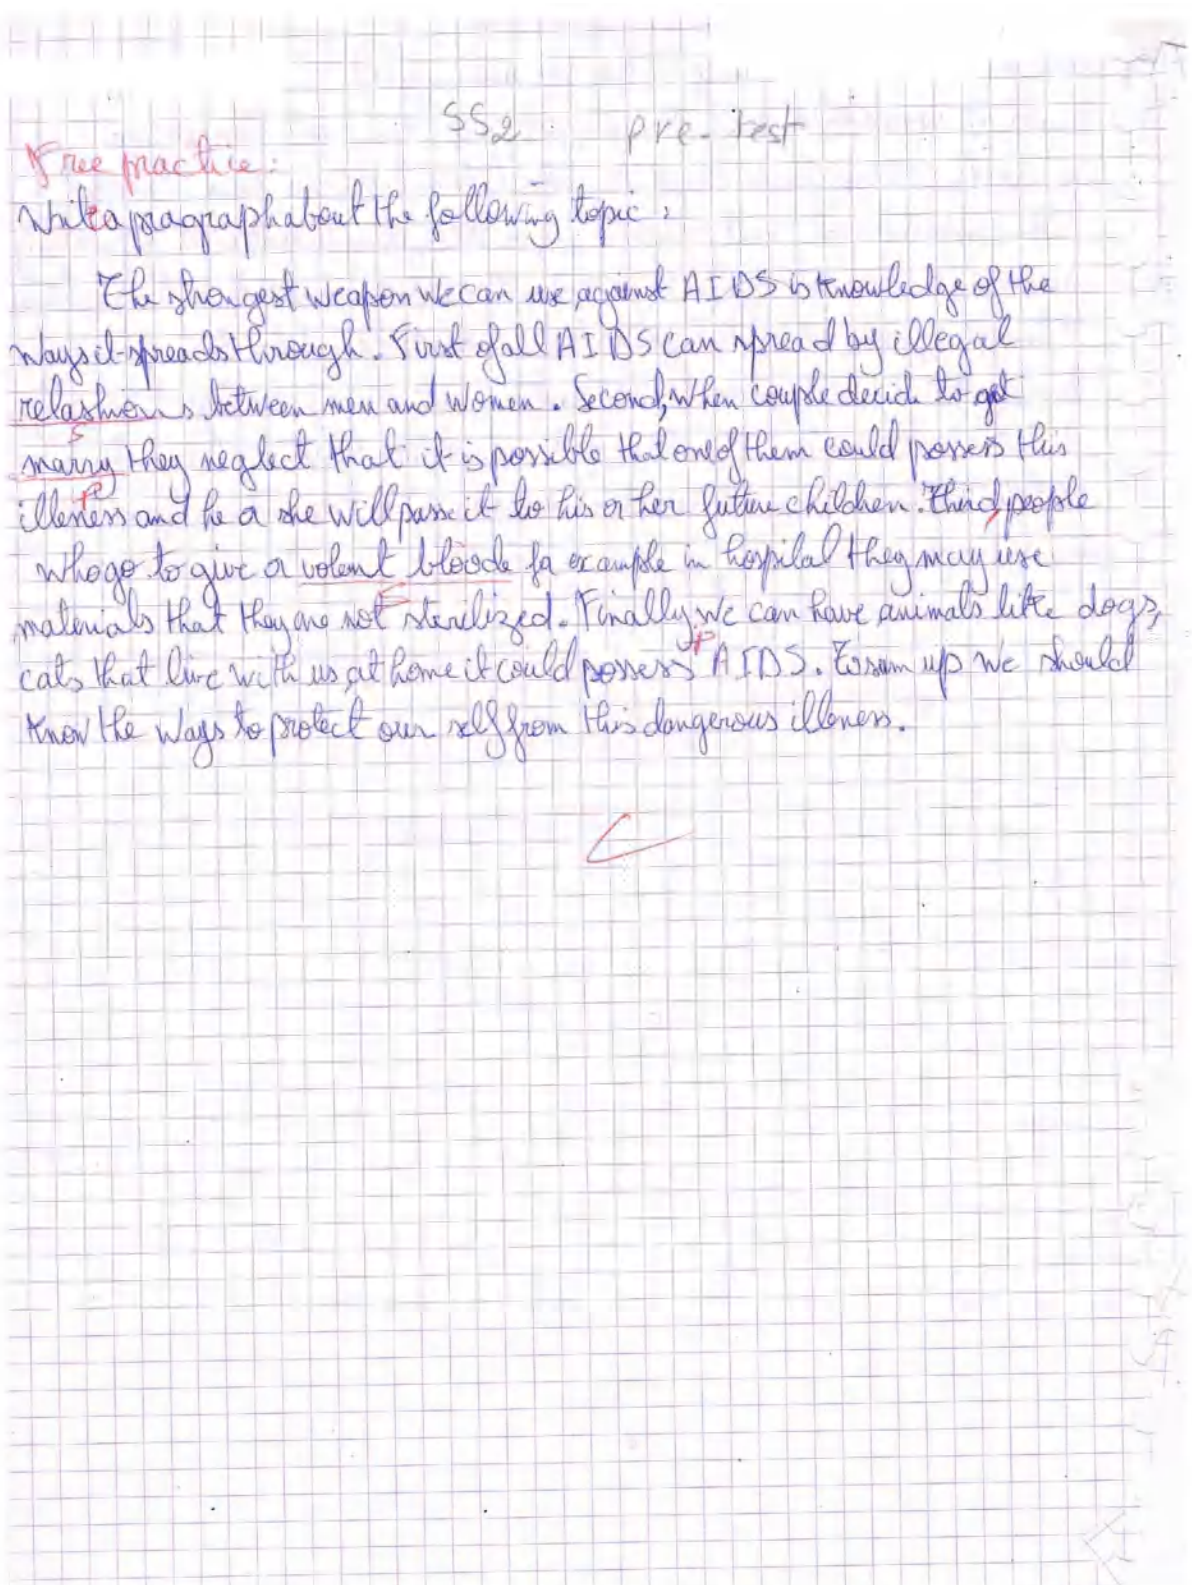 SS2 pre-test
Free practice:
Write a pragraph about the following topic:
The strongest weapon we can use against AIDS is knowledge of the
ways it spreads through. First of all AIDS can spread by illegal
relashions between men and women. Second, when couple decide to get
S
marry they neglect that it is possible that one of them could possess this
P
illeness and he or she will passe it to his or her future children. Third, people
who go to give a volent bloode for example in hospital they may use
materials that they are not sterilized. Finally, we can have animals like dogs,
P
cats that live with us at home it could possess AIDS. To sum up we should
know the ways to protect our self from this dangerous illeness.